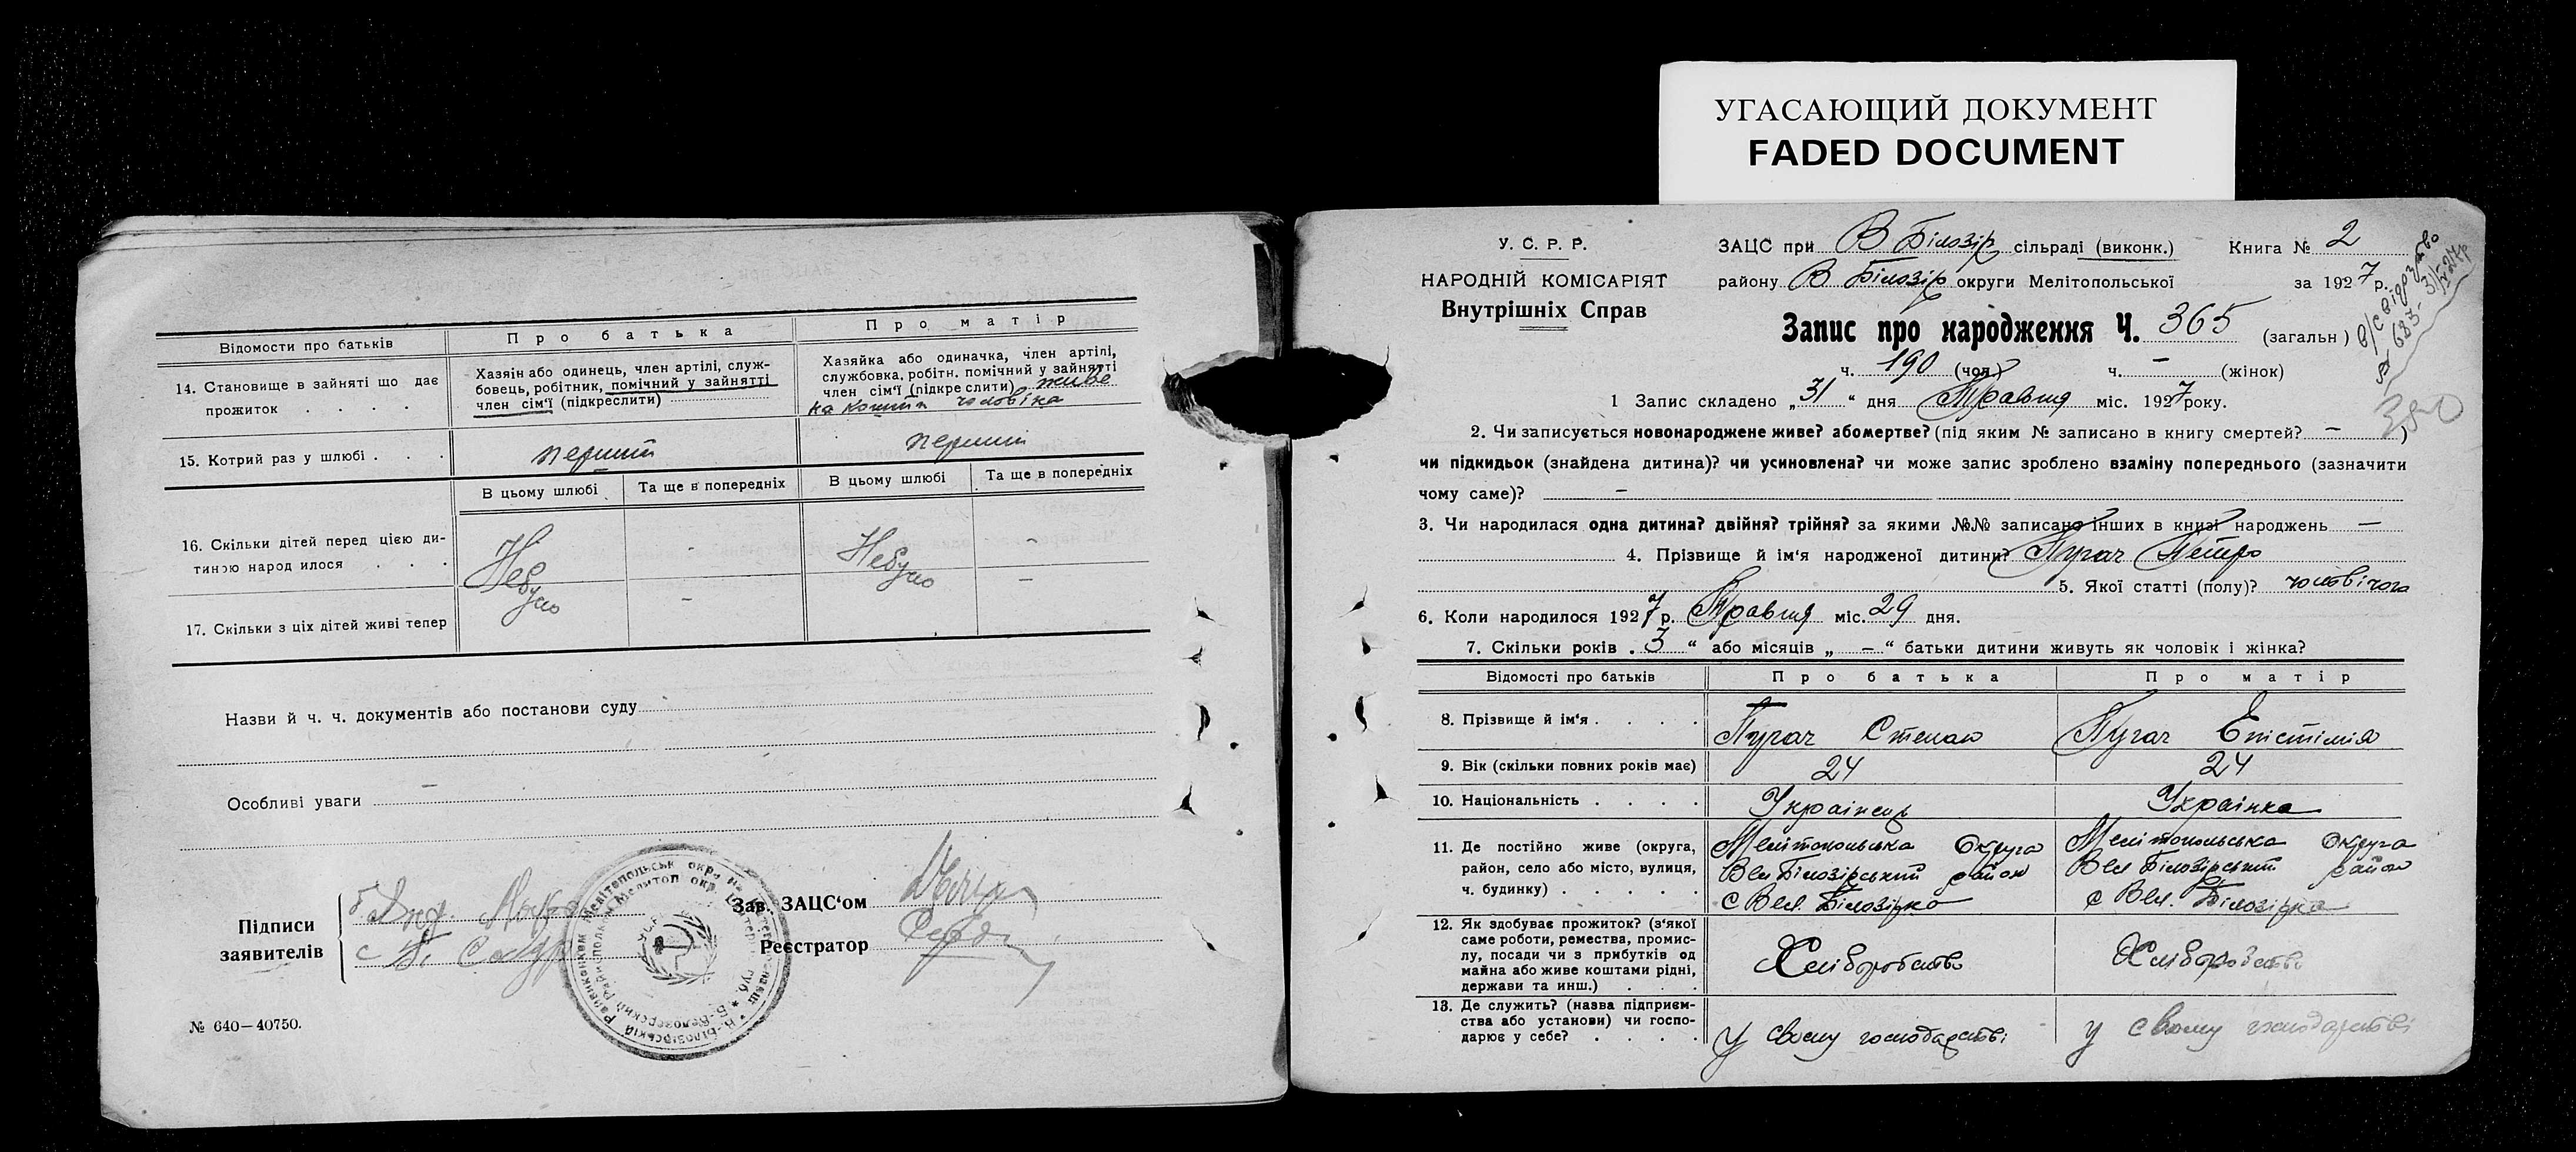 УГАСАЮЩИЙ ДОКУМЕНТ
FADED DOCUMENT
Відомости про батьків
Про батька
Про матір
14. Становище в зайняті що дає прожиток . . . .
Хазяїн або одинець, член артілі, служ-
бовець, робітник, помічний у зайнятті
член сім'ї (підкреслити)
Хазяйка або одиначка, член артілі,
службовка, робітн. помічний у зайнятті
член сім'ї (підкреслити) живе
на кошти чоловіка
15. Котрий раз у шлюбі . . .
перший
перший
В цьому шлюбі
Та ще в попередніх
В цьому шлюбі
Та ще в попередніх
16. Скільки дітей перед цією ди-
тиною народилося . . .
Небуло
-
Небуло
-
17. Скільки з ціх дітей живі тепер
-
-
Назви й ч. ч. документів або постанови суду
Особливі уваги
-
Підписи
заявителів
Зав. ЗАЦС'ом
Реєстратор
№ 640—40750.
У. С. Р. Р.
НАРОДНІЙ КОМІСАРІЯТ
Внутрішніх Справ
ЗАЦС при В Білозір сільраді (виконк.) Книга № 2
району В Білозір округи Мелітопольської за 1927 р.
Запис про народження Ч. 365 (загальн)
ч. 190 (чол) ч. – (жінок)
1 Запис складено „31“ дня Травня міс. 1927 року.
2. Чи записується новонароджене живе? або мертве? (під яким № записано в книгу смертей? – )
чи підкидьок (знайдена дитина)? чи усиновлена? чи може запис зроблено взаміну попереднього (зазначити
чому саме)? –
3. Чи народилася одна дитина? двійня? трійня? за якими №№ записано інших в книзі народжень –
4. Прізвище й ім'я народженої дитини? Пугач Петро
5. Якої статті (полу)? чоловічого
6. Коли народилося 1927 р. Травня міс. 29 дня.
7. Скільки років . 3 “ або місяців „ – “ батьки дитини живуть як чоловік і жінка?
Відомості про батьків
Про батька
Про матір
8. Прізвище й ім'я . . . .
Пугач Степан
Пугач Епістімія
9. Вік (скільки повних років має)
24
24
10. Національність . . . .
Українець
Українка
11. Де постійно живе (округа,
район, село або місто, вулиця,
ч. будинку) . . . . .
Мелітопольська Округа
Вел Білозірський район
с Вел. Білозірка
Мелітопольська Округа
Вел Білозірський район
с Вел. Білозірка
12. Як здобуває прожиток? (з'якої
саме роботи, ремества, промис-
лу, посади чи з прибутків од
майна або живе коштами рідні,
держави та инш.) . . .
Хліборобство
Хліборобство
13. Де служить? (назва підприєм-
ства або установи) чи госпо-
дарює у себе? . . . .
у свому господарстві
у свому господарстві